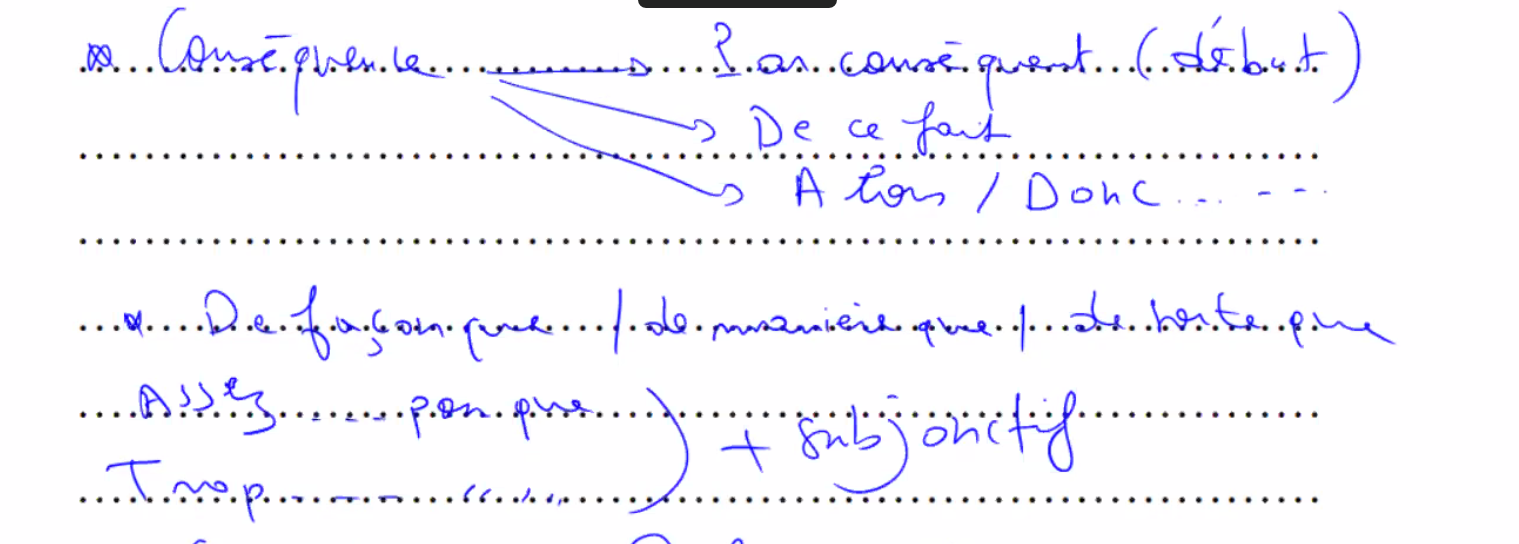 Conséquence → Par conséquent (début)
→ De ce fait
→ Alors / Donc... ---
De façon que / de manière que / de sorte que
Assez ---- pour que
Trop ---- " " ) + subjonctif